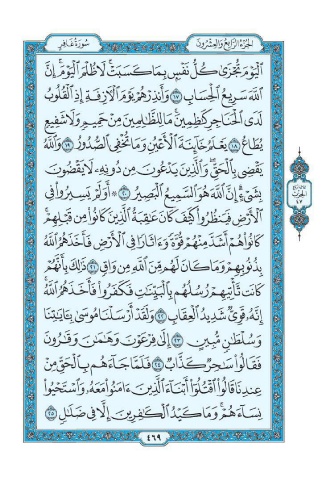 سورة غافر
الجزء الرابع والعشرون
ٱلۡيَوۡمَ تُجۡزَىٰ كُلُّ نَفۡسِۭ بِمَا كَسَبَتۡۚ لَا ظُلۡمَ ٱلۡيَوۡمَۚ إِنَّ
ٱللَّهَ سَرِيعُ ٱلۡحِسَابِ ١٧ وَأَنذِرۡهُمۡ يَوۡمَ ٱلۡأٓزِفَةِ إِذِ ٱلۡقُلُوبُ
لَدَى ٱلۡحَنَاجِرِ كَٰظِمِينَۚ مَا لِلظَّٰلِمِينَ مِنۡ حَمِيمٖ وَلَا شَفِيعٖ
يُطَاعُ ١٨ يَعۡلَمُ خَآئِنَةَ ٱلۡأَعۡيُنِ وَمَا تُخۡفِي ٱلصُّدُورُ ١٩ وَٱللَّهُ
يَقۡضِي بِٱلۡحَقِّۖ وَٱلَّذِينَ يَدۡعُونَ مِن دُونِهِۦ لَا يَقۡضُونَ
بِشَيۡءٍۗ إِنَّ ٱللَّهَ هُوَ ٱلسَّمِيعُ ٱلۡبَصِيرُ ٢٠ ۞ أَوَلَمۡ يَسِيرُواْ فِي
ٱلۡأَرۡضِ فَيَنظُرُواْ كَيۡفَ كَانَ عَٰقِبَةُ ٱلَّذِينَ كَانُواْ مِن قَبۡلِهِمۡۚ
كَانُواْ هُمۡ أَشَدَّ مِنۡهُمۡ قُوَّةٗ وَءَاثَارٗا فِي ٱلۡأَرۡضِ فَأَخَذَهُمُ ٱللَّهُ
بِذُنُوبِهِمۡ وَمَا كَانَ لَهُم مِّنَ ٱللَّهِ مِن وَاقٖ ٢١ ذَٰلِكَ بِأَنَّهُمۡ
كَانَت تَّأۡتِيهِمۡ رُسُلُهُم بِٱلۡبَيِّنَٰتِ فَكَفَرُواْ فَأَخَذَهُمُ ٱللَّهُۚ
إِنَّهُۥ قَوِيّٞ شَدِيدُ ٱلۡعِقَابِ ٢٢ وَلَقَدۡ أَرۡسَلۡنَا مُوسَىٰ بِـَٔايَٰتِنَا
وَسُلۡطَٰنٖ مُّبِينٍ ٢٣ إِلَىٰ فِرۡعَوۡنَ وَهَٰمَٰنَ وَقَٰرُونَ
فَقَالُواْ سَٰحِرٞ كَذَّابٞ ٢٤ فَلَمَّا جَآءَهُم بِٱلۡحَقِّ مِنۡ
عِندِنَا قَالُواْ ٱقۡتُلُوٓاْ أَبۡنَآءَ ٱلَّذِينَ ءَامَنُواْ مَعَهُۥ وَٱسۡتَحۡيُواْ
نِسَآءَهُمۡۚ وَمَا كَيۡدُ ٱلۡكَٰفِرِينَ إِلَّا فِي ضَلَٰلٖ ٢٥
٤٦٩